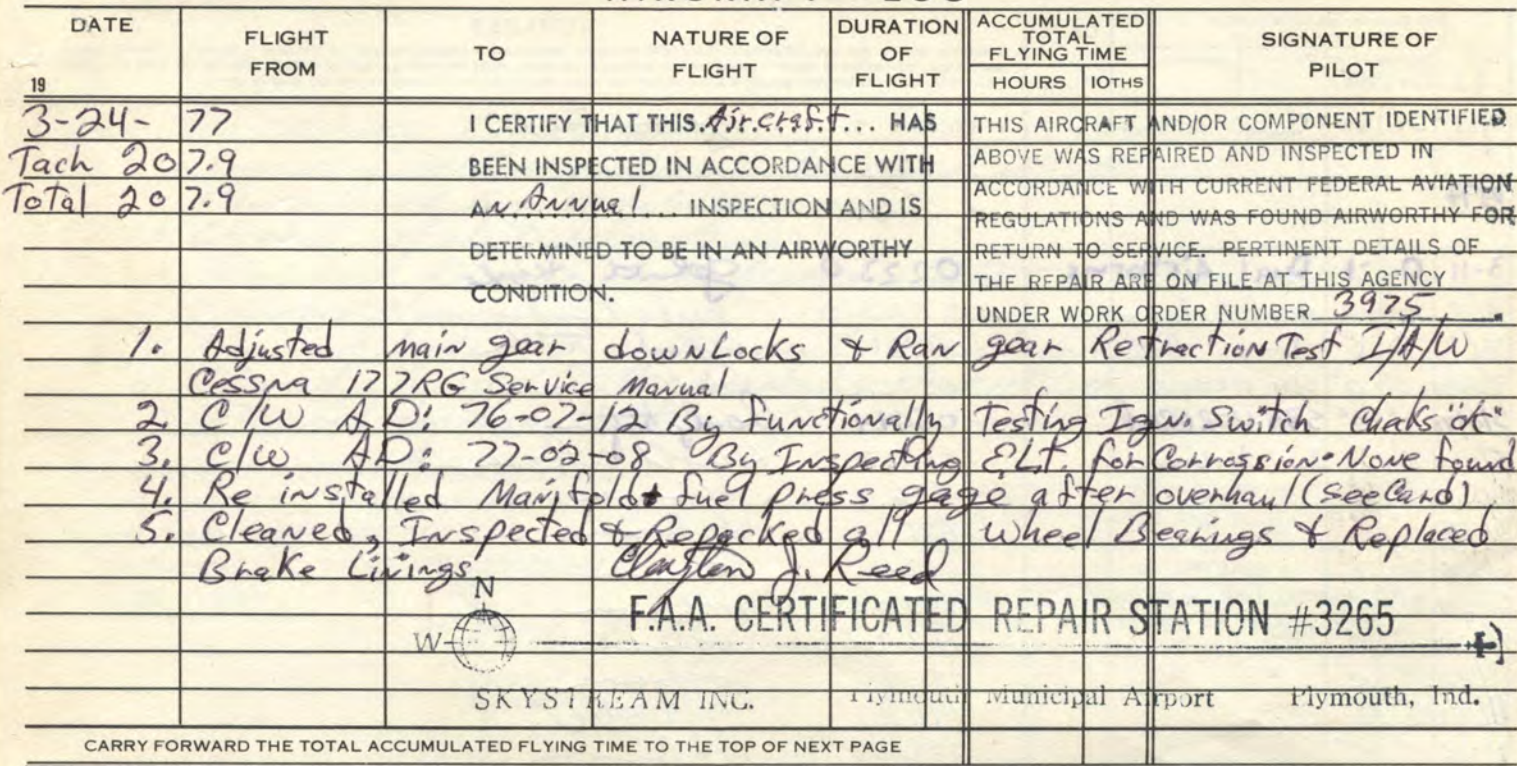 DATE
FLIGHT FROM
TO
NATURE OF FLIGHT
DURATION OF FLIGHT
ACCUMULATED TOTAL FLYING TIME
HOURS 10THS
SIGNATURE OF PILOT
19
3-24-77
Tach 207.9
Total 207.9
I CERTIFY THAT THIS Aircraft HAS
BEEN INSPECTED IN ACCORDANCE WITH
AN Annual INSPECTION AND IS
DETERMINED TO BE IN AN AIRWORTHY
CONDITION.
THIS AIRCRAFT AND/OR COMPONENT IDENTIFIED
ABOVE WAS REPAIRED AND INSPECTED IN
ACCORDANCE WITH CURRENT FEDERAL AVIATION
REGULATIONS AND WAS FOUND AIRWORTHY FOR
RETURN TO SERVICE. PERTINENT DETAILS OF
THE REPAIR ARE ON FILE AT THIS AGENCY
UNDER WORK ORDER NUMBER 3975.
1. Adjusted main gear downLocks & Ran gear Retraction Test I/A/W
Cessna 177RG Service Manual
2. C/W A.D: 76-07-12 By functionally Testing Ign. Switch Checks "ok"
3. C/W AD: 77-02-08 By Inspecting ELT. for Corrossion. None found
4. Re installed Manifold & fuel press gage after overhaul (see Card)
5. Cleaned, Inspected & Repacked all wheel Bearings & Replaced
Brake Linings Clayton J. Reed
N
W
F.A.A. CERTIFICATED REPAIR STATION #3265
SKYSTREAM INC. Plymouth Municipal Airport Plymouth, Ind.
CARRY FORWARD THE TOTAL ACCUMULATED FLYING TIME TO THE TOP OF NEXT PAGE